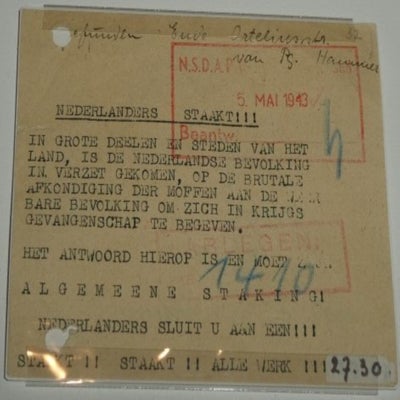 gefunden: Ende Orteliusstr. 52.
van Pg. Hammer
N.S.D.A.P.
5. MAI 1943
Beantw.
NEDERLANDERS STAAKT!!!
IN GROTE DEELEN EN STEDEN VAN HET
LAND, IS DE NEDERLANDSE BEVOLKING
IN VERZET GEKOMEN, OP DE BRUTALE
AFKONDIGING DER MOFFEN AAN DE WEER
BARE BEVOLKING OM ZICH IN KRIJGS
GEVANGENSCHAP TE BEGEVEN.
HET ANTWOORD HIEROP IS EN MOET
1410
ALGEMEENE STAKING!
NEDERLANDERS SLUIT U AAN EEN!!!
STAAKT !! STAAKT !! ALLE WERK !!!
27.30.